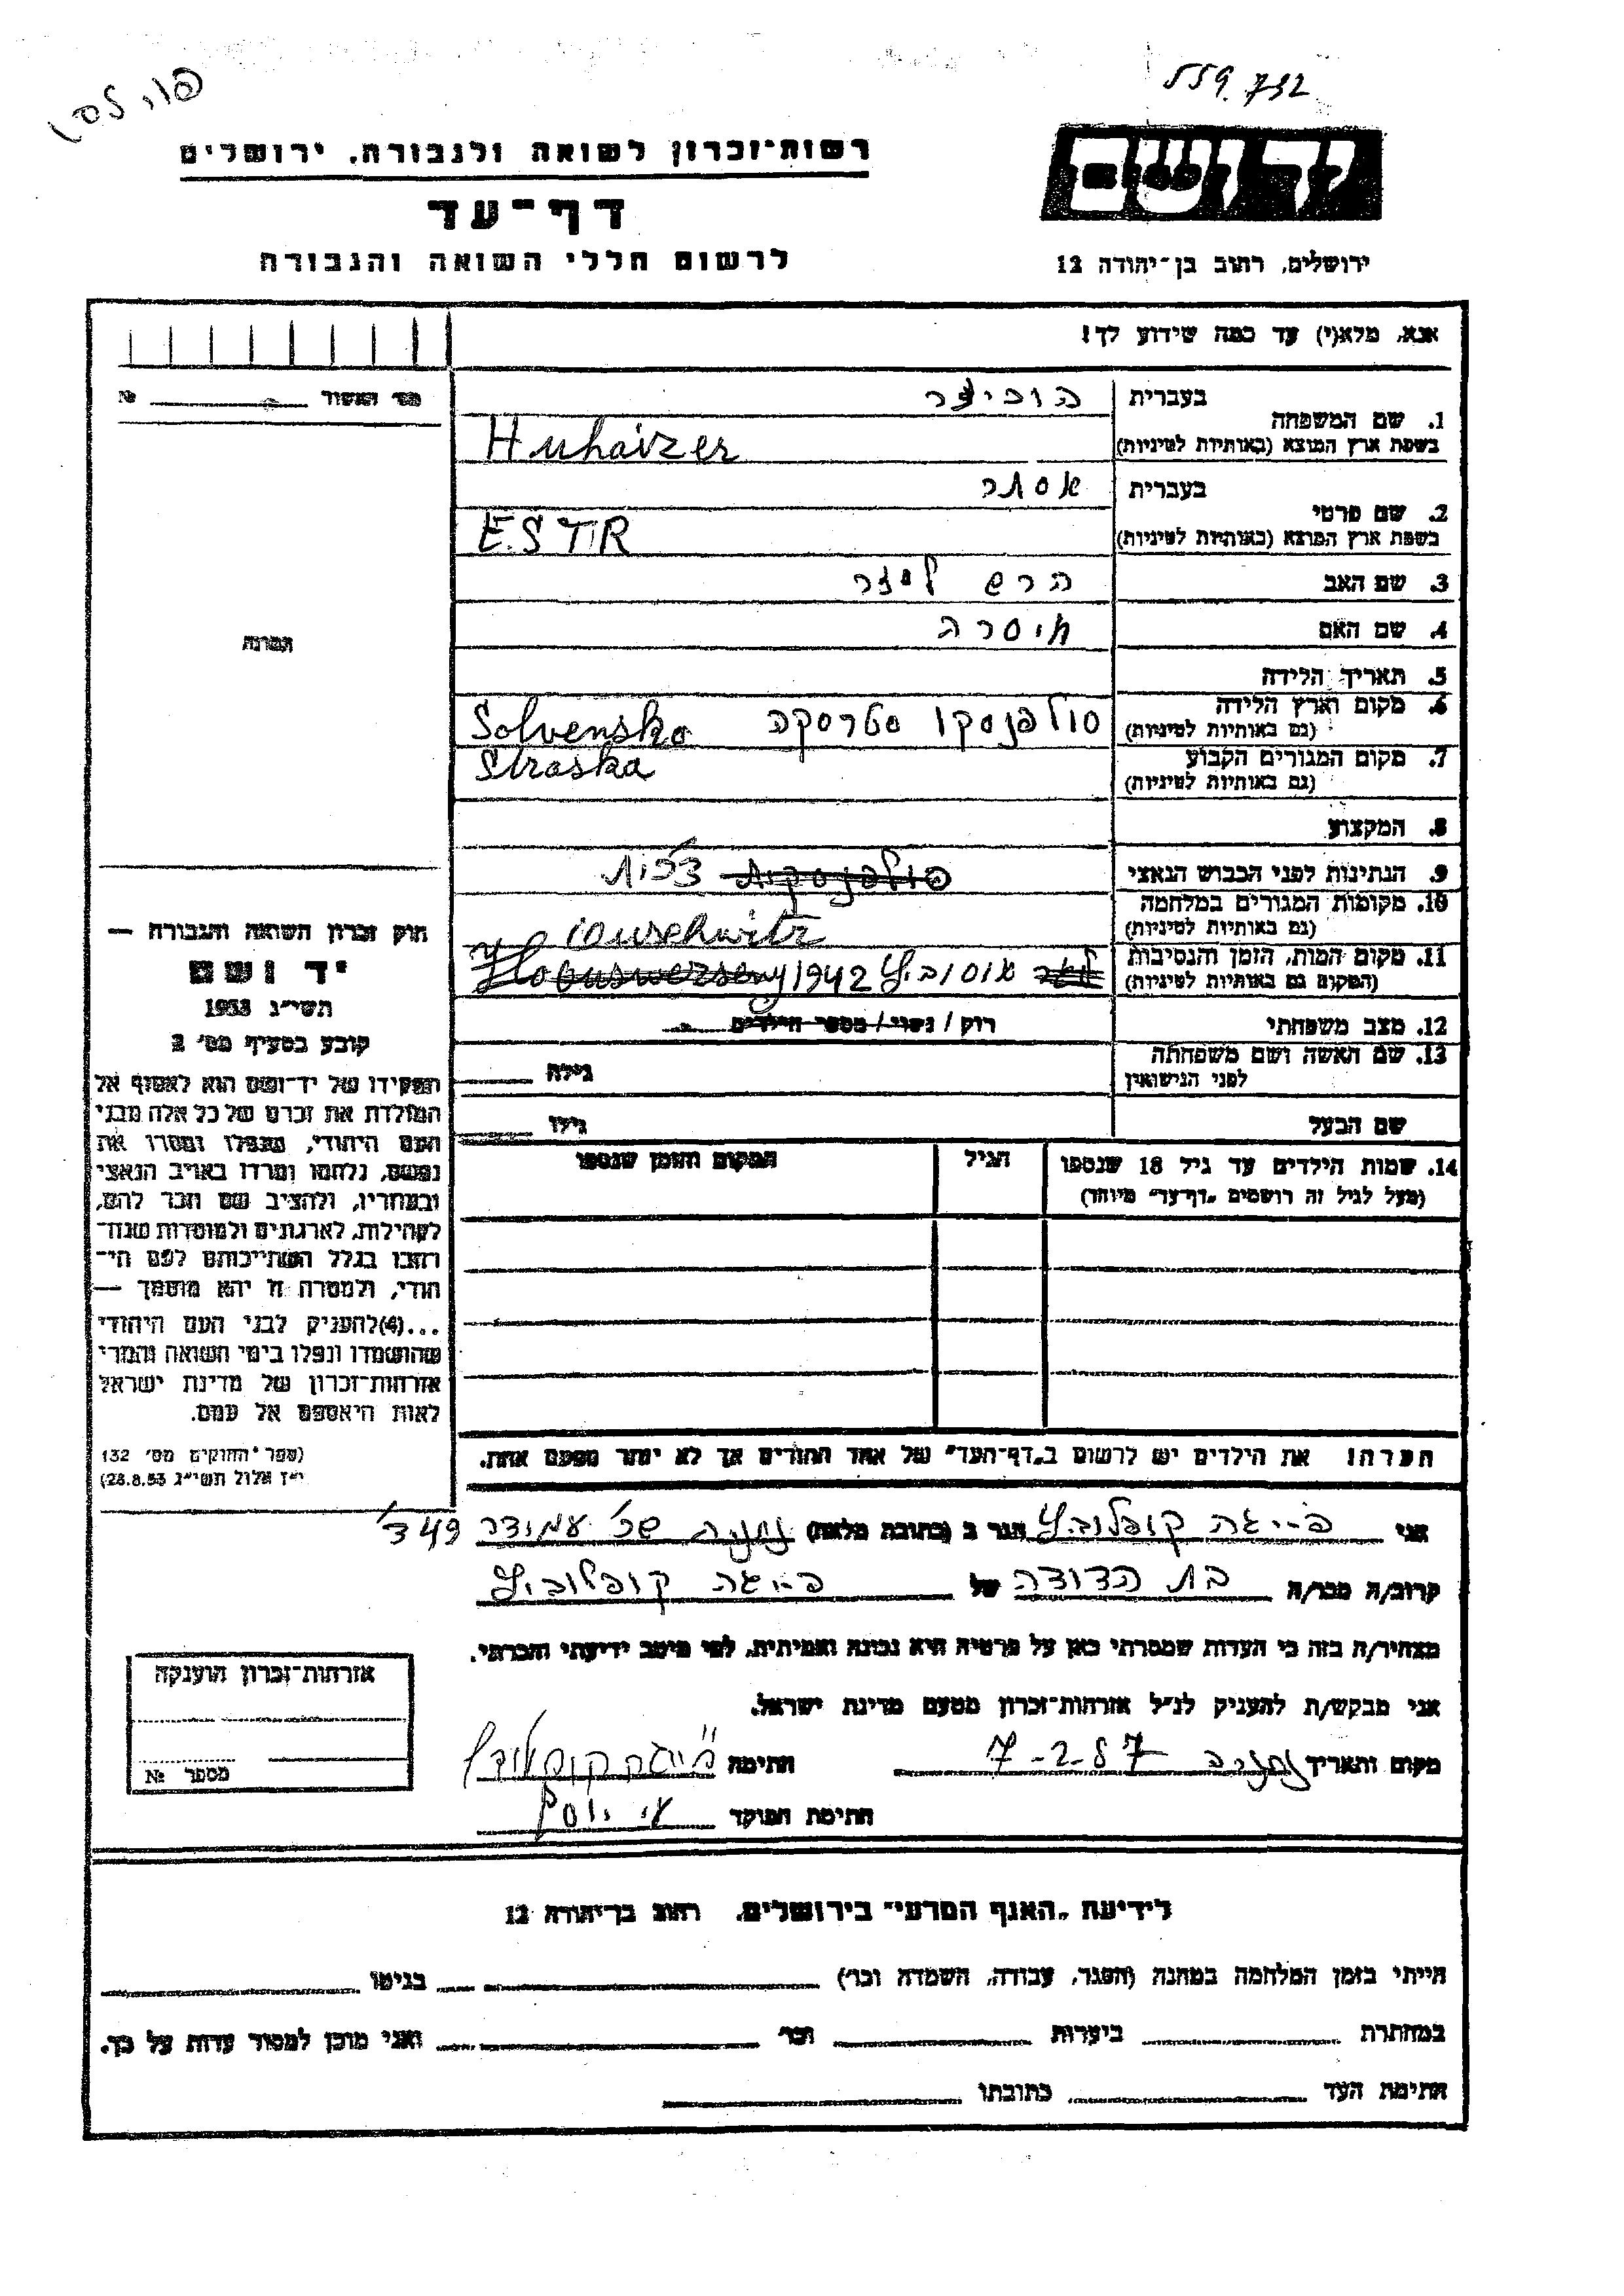 559.732
רשות־זכרון לשואה ולגבורה, ירושלים
יד ושם
דף־עד
לרשום חללי השואה והגבורה
ירושלים, רחוב בן־יהודה 12
אנא, מלא(י) עד כמה שידוע לך!
מס׳ האשור №
1. שם המשפחה
בעברית
בשפת ארץ המוצא (באותיות לטיניות)
Huhaizer
2. שם פרטי
בעברית אסתר
בשפת ארץ המוצא (באותיות לטיניות)
ESTR
3. שם האב הרש לייזר
4. שם האם
5. תאריך הלידה
6. מקום וארץ הלידה
(גם באותיות לטיניות)
סולפנסקו סטרסקה Solvensko
Straska
7. מקום המגורים הקבוע
(גם באותיות לטיניות)
8. המקצוע
9. הנתינות לפני הכבוש הנאצי צ׳כית
10. מקומות המגורים במלחמה
(גם באותיות לטיניות)
11. מקום המות, הזמן והנסיבות
(המקום גם באותיות לטיניות)
1942
12. מצב משפחתי
רוק / נשוי / מספר הילדים
13. שם האשה ושם משפחתה
לפני הנישואין
גילה
שם הבעל
גילו
14. שמות הילדים עד גיל 18 שנספו
(מעל לגיל זה רושמים „דף־עד״ מיוחד)
הגיל
המקום והזמן שנספו
תמונה
חוק זכרון השואה והגבורה —
יד ושם
תשי״ג 1953
קובע בסעיף מס׳ 2
תפקידו של יד־ושם הוא לאסוף אל
המולדת את זכרם של כל אלה מבני
העם היהודי, שנפלו ומסרו את
נפשם, נלחמו ומרדו באויב הנאצי
ובעוזריו, ולהציב שם וזכר להם,
לקהילות, לארגונים ולמוסדות שנח־
רבו בגלל השתייכותם לעם הי־
הודי, ולמטרה זו יהא מוסמך —
...(4) להעניק לבני העם היהודי
שהושמדו ונפלו בימי השואה והמרי
אזרחות־זכרון של מדינת ישראל
לאות היאספם אל עמם.
(ספר החוקים מס׳ 132
י״ז אלול תשי״ג 28.8.53)
הערה! את הילדים יש לרשום ב„דף־העד״ של אחד ההורים אך לא יותר מפעם אחת.
אני פייגה קופלוביץ הגר ב (כתובת מלאה) נתניה שכ׳ עמידר 349
קרוב/ה מכר/ה בת הדודה של פייגה קופלוביץ
מצהיר/ה בזה כי העדות שמסרתי כאן על פרטיה היא נכונה ואמיתית, לפי מיטב ידיעתי והכרתי.
אני מבקש/ת להעניק לנ״ל אזרחות־זכרון מטעם מדינת ישראל.
מקום ותאריך נתניה 7-2-57 חתימה פייגה קופלוביץ
חתימת הפוקד
אזרחות־זכרון הוענקה
מספר №
לידיעת „האגף המדעי״ בירושלים, רחוב בן־יהודה 12
הייתי בזמן המלחמה במחנה (הסגר, עבודה, השמדה וכו׳) בגיטו
במחתרת ביערות וכו׳ ואני מוכן למסור עדות על כך.
חתימת העד כתובתו